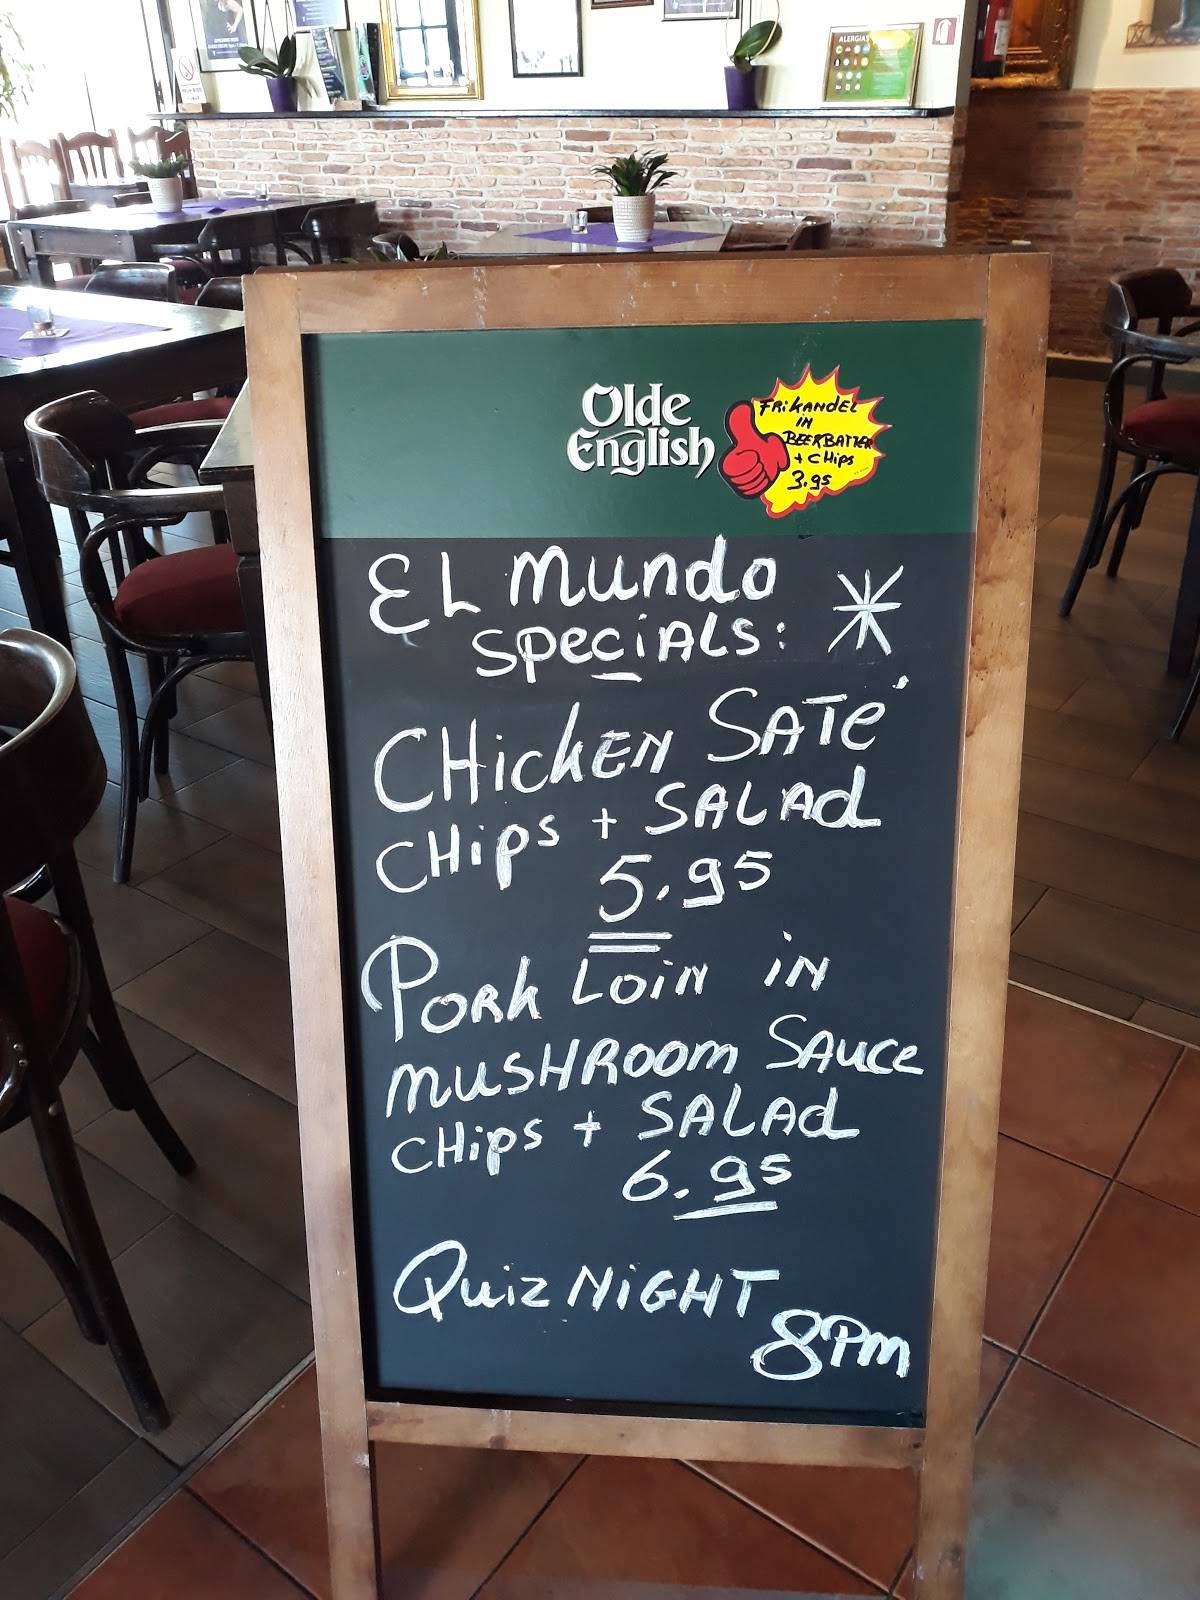 ALERGIAS
Olde
English
FRiKANDEL
iN
BEERBATTER
+ CHips
3.95
EL Mundo
SpeciALS:
CHickEN SATé
CHips + SALAd
5.95
PORk LOiN iN
MUSHROOM SAUCE
CHips + SALAd
6.95
Quiz NiGHT
8PM